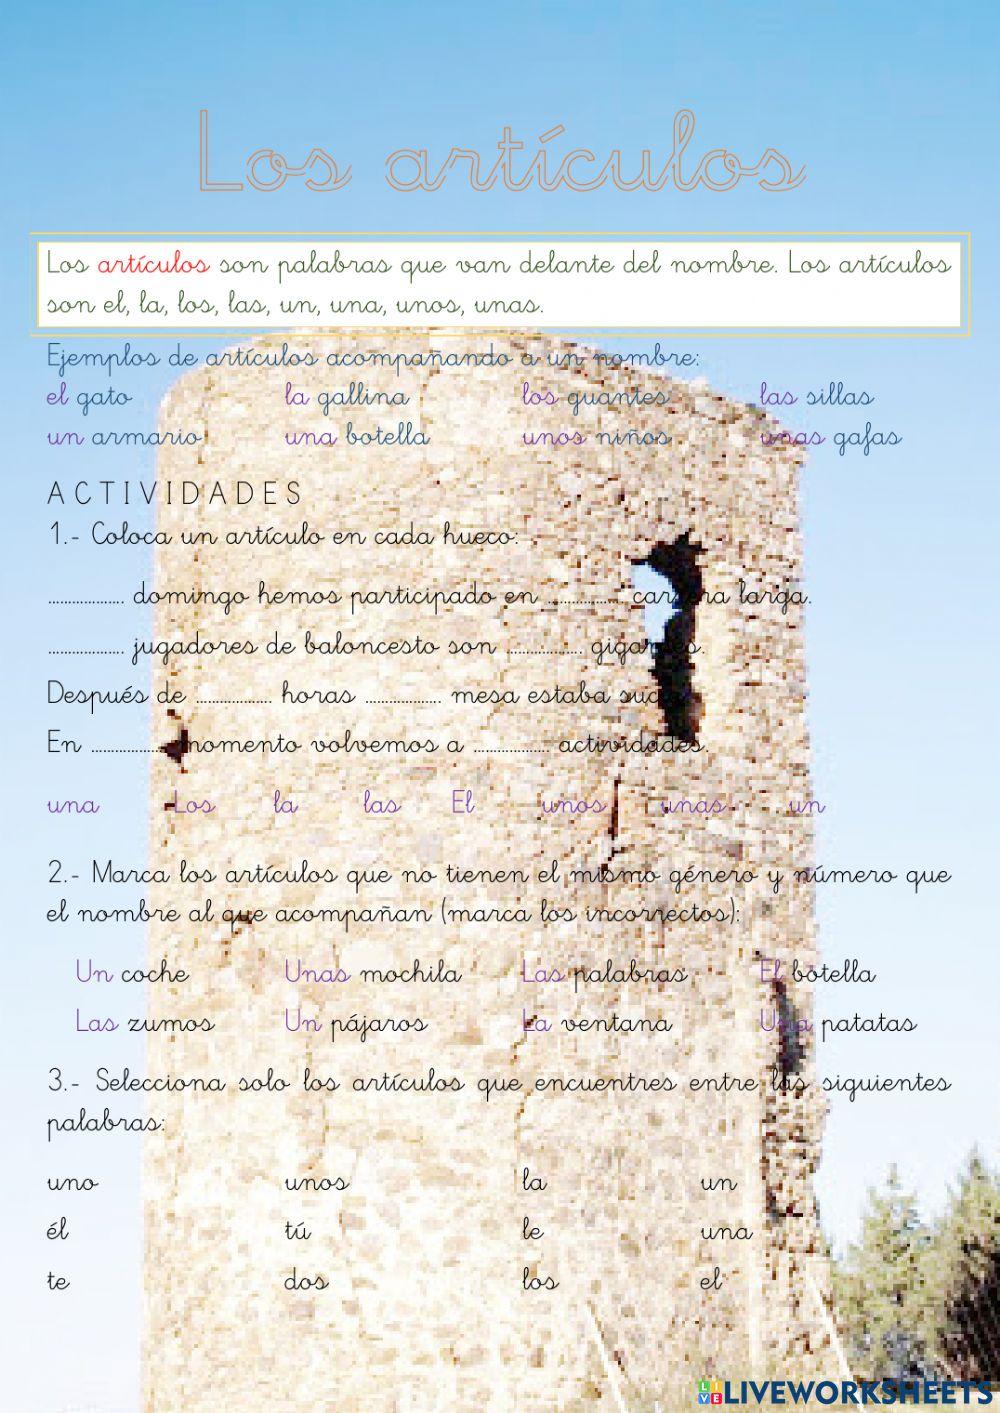 Los artículos
Los artículos son palabras que van delante del nombre. Los artículos
son el, la, los, las, un, una, unos, unas.
Ejemplos de artículos acompañando a un nombre:
el gato la gallina los guantes las sillas
un armario una botella unos niños unas gafas
ACTIVIDADES
1.- Coloca un artículo en cada hueco:
................... domingo hemos participado en ................... carrera larga.
................... jugadores de baloncesto son ................... gigantes.
Después de ................... horas ................... mesa estaba sucia.
En ................... momento volvemos a ................... actividades.
una Los la las El unos unas un
2.- Marca los artículos que no tienen el mismo género y número que
el nombre al que acompañan (marca los incorrectos):
Un coche Unas mochila Las palabras El botella
Las zumos Un pájaros La ventana Una patatas
3.- Selecciona solo los artículos que encuentres entre las siguientes
palabras:
uno unos la un
él tú le una
te dos los el
LIVE LIVEWORKSHEETS